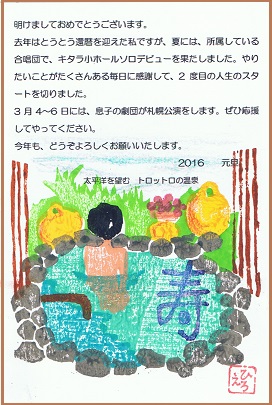 明けましておめでとうございます。
去年はとうとう還暦を迎えた私ですが、夏には、所属している
合唱団で、キタラ小ホールソロデビューを果たしました。やり
たいことがたくさんある毎日に感謝して、2 度目の人生のスタ
ートを切りました。
3 月 4～6 日には、息子の劇団が札幌公演をします。ぜひ応援
してやってください。
今年も、どうぞよろしくお願いいたします。
2016 元旦
太平洋を望む トロットロの温泉
寿
ひろえ